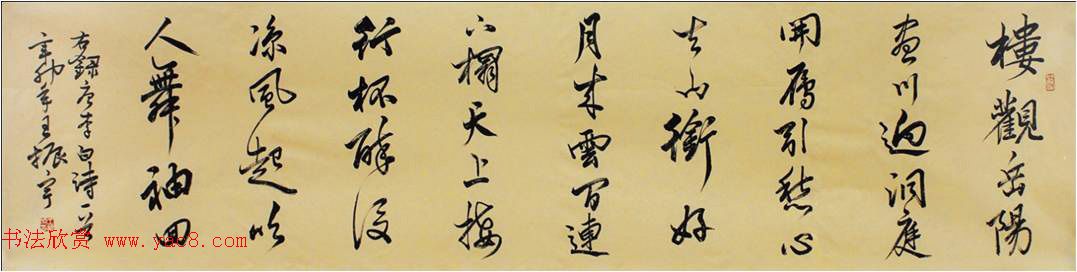 樓觀岳陽
盡川迥洞庭
開鴈引愁心
去山銜好
月來雲間連
下榻天上接
行杯醉後
涼風起吹
人舞袖回
右錄唐李白詩一首
辛卯年王振宇
书法欣赏 www.yac8.com